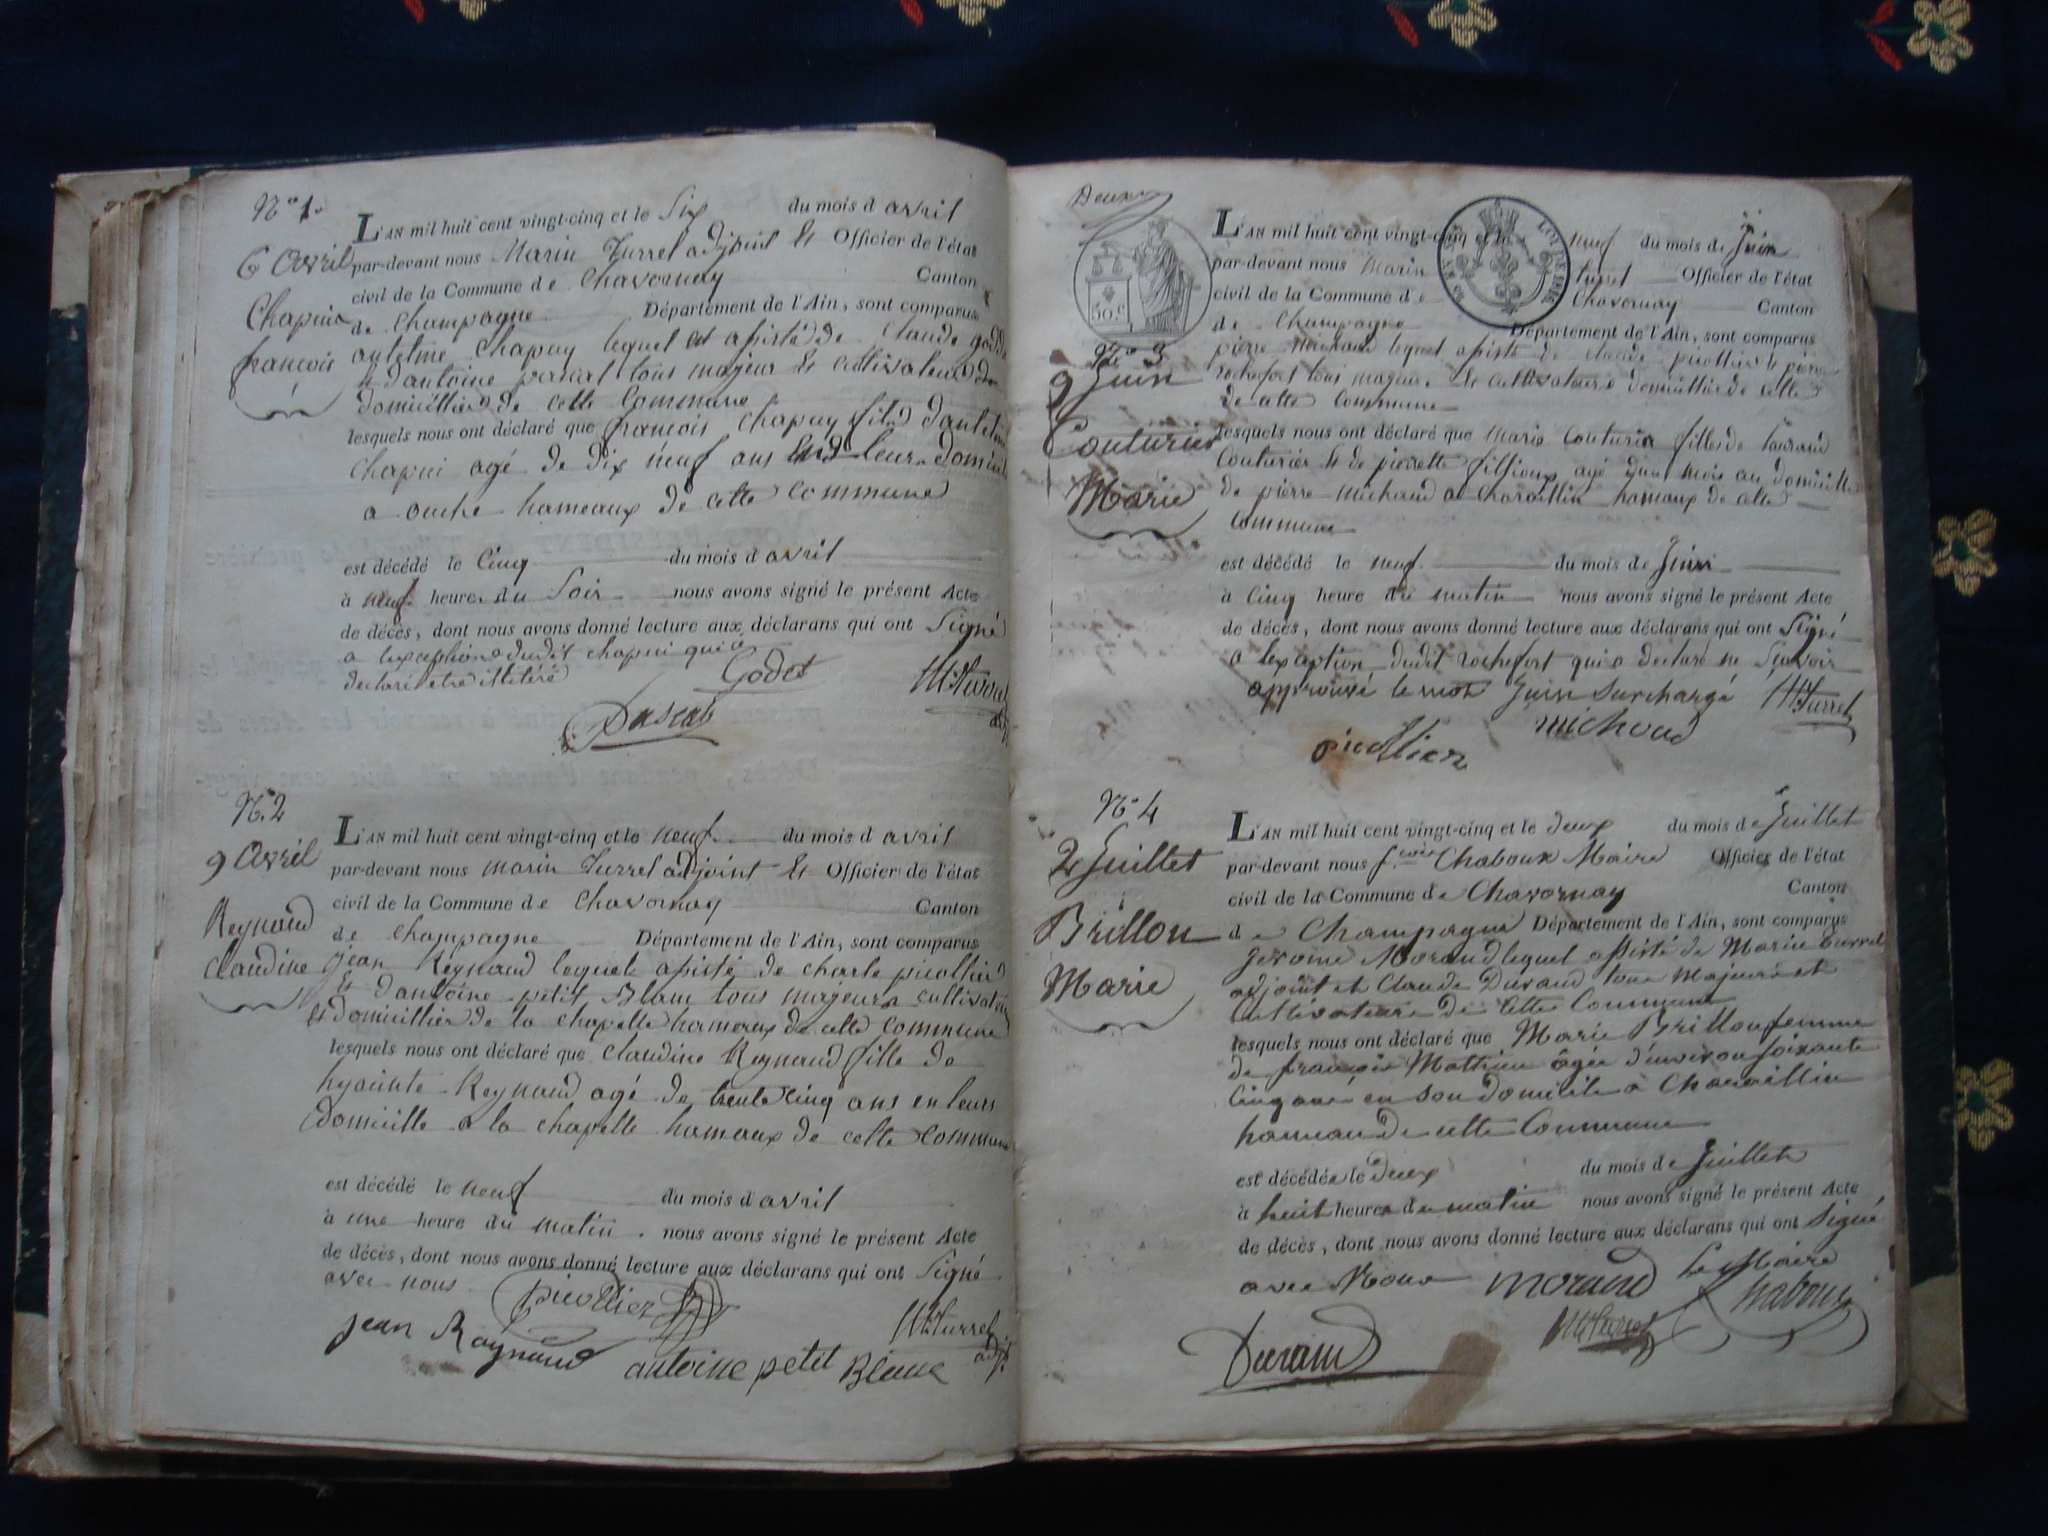 N° 1
6 Avril
Chapui
françois
L'AN mil huit cent vingt-cinq et le Six du mois d avril
par-devant nous Marin Turrel adjoint et Officier de l'état
civil de la Commune de Chavornay Canton
de Champagne Département de l'Ain, sont comparus
antelme Chapuy lequel est assisté de Claude
et d'antoine pascal tous majeur et cultivateurs
domicilliés de cette Commune
lesquels nous ont déclaré que francois Chapuy fils d'antelme
Chapui agé de dix neuf ans leur domicile
a ouche hameaux de cette commune
est décédé le Cinq du mois d avril
à neuf heures du Soir nous avons signé le présent Acte
de décès, dont nous avons donné lecture aux déclarans qui ont Signé
a lexception dudit chapui qui a
declaré etre illitéré Godet
Pascal
N° 2
9 Avril
Reynaud
Claudine
L'AN mil huit cent vingt-cinq et le neuf du mois d avril
par-devant nous marin Turrel adjoint et Officier de l'état
civil de la Commune de Chavornay Canton
de Champagne Département de l'Ain, sont comparus
jean Reynaud lequel assisté de charle picollier
et d'antoine petit Blanc tous majeurs cultivateur
et domicillier de la chapelle hameaux de cette commune
lesquels nous ont déclaré que claudine Reynaud fille de
hyacinte Reynaud agé de trente cinq ans en leurs
domicille a la chapelle hameaux de cette commune
est décédé le neuf du mois d avril
à une heure du matin. nous avons signé le présent Acte
de décès, dont nous avons donné lecture aux déclarans qui ont Signé
avec nous picollier
jean Raynaud antoine petit Blanc Mti Turrel adjt
Deux
50. C
LOI DE 1816
N° 3
9 Juin
Couturier
Marie
L'AN mil huit cent vingt-cinq et le neuf du mois de Juin
par-devant nous Marin turrel Officier de l'état
civil de la Commune de Chavornay Canton
de Champagne Département de l'Ain, sont comparus
pierre michaud lequel assisté de claude picollier et pierre
rochefort tous majeur et cultivateurs domicilliés de cette
de cette commune
lesquels nous ont déclaré que marie Couturier fille de
Couturier et de pierrette fillioux agé d'un mois au domicille
de pierre michaud a charaillin hameaux de cette
commune
est décédé le neuf du mois de Juin
à Cinq heure du matin nous avons signé le présent Acte
de décès, dont nous avons donné lecture aux déclarans qui ont Signé
a lexception dudit rochefort qui a declaré ne Scavoir
approuvé le mot Juin surchargé Mti Turrel
picollier michoud
N° 4
2 Juillet
Brillon
Marie
L'AN mil huit cent vingt-cinq et le deux du mois de Juillet
par-devant nous f.cois Chaboux Maire Officier de l'état
civil de la Commune de Chavornay Canton
de Champagne Département de l'Ain, sont comparus
Jerome Morand lequel assisté de Marin turrel
adjoint et Claude Durand tous Majeurs et
Cultivateurs de cette Commune
lesquels nous ont déclaré que Marie Brillon femme
de françois Mathieu âgée d'environ soixante
Cinq ans en son domicile à Charaillin
hameau de cette Commune
est décédée le deux du mois de Juillet
à huit heures du matin nous avons signé le présent Acte
de décès, dont nous avons donné lecture aux déclarans qui ont Signé
avec Nous morand Le Maire
Chaboux
Durand Mti Turrel